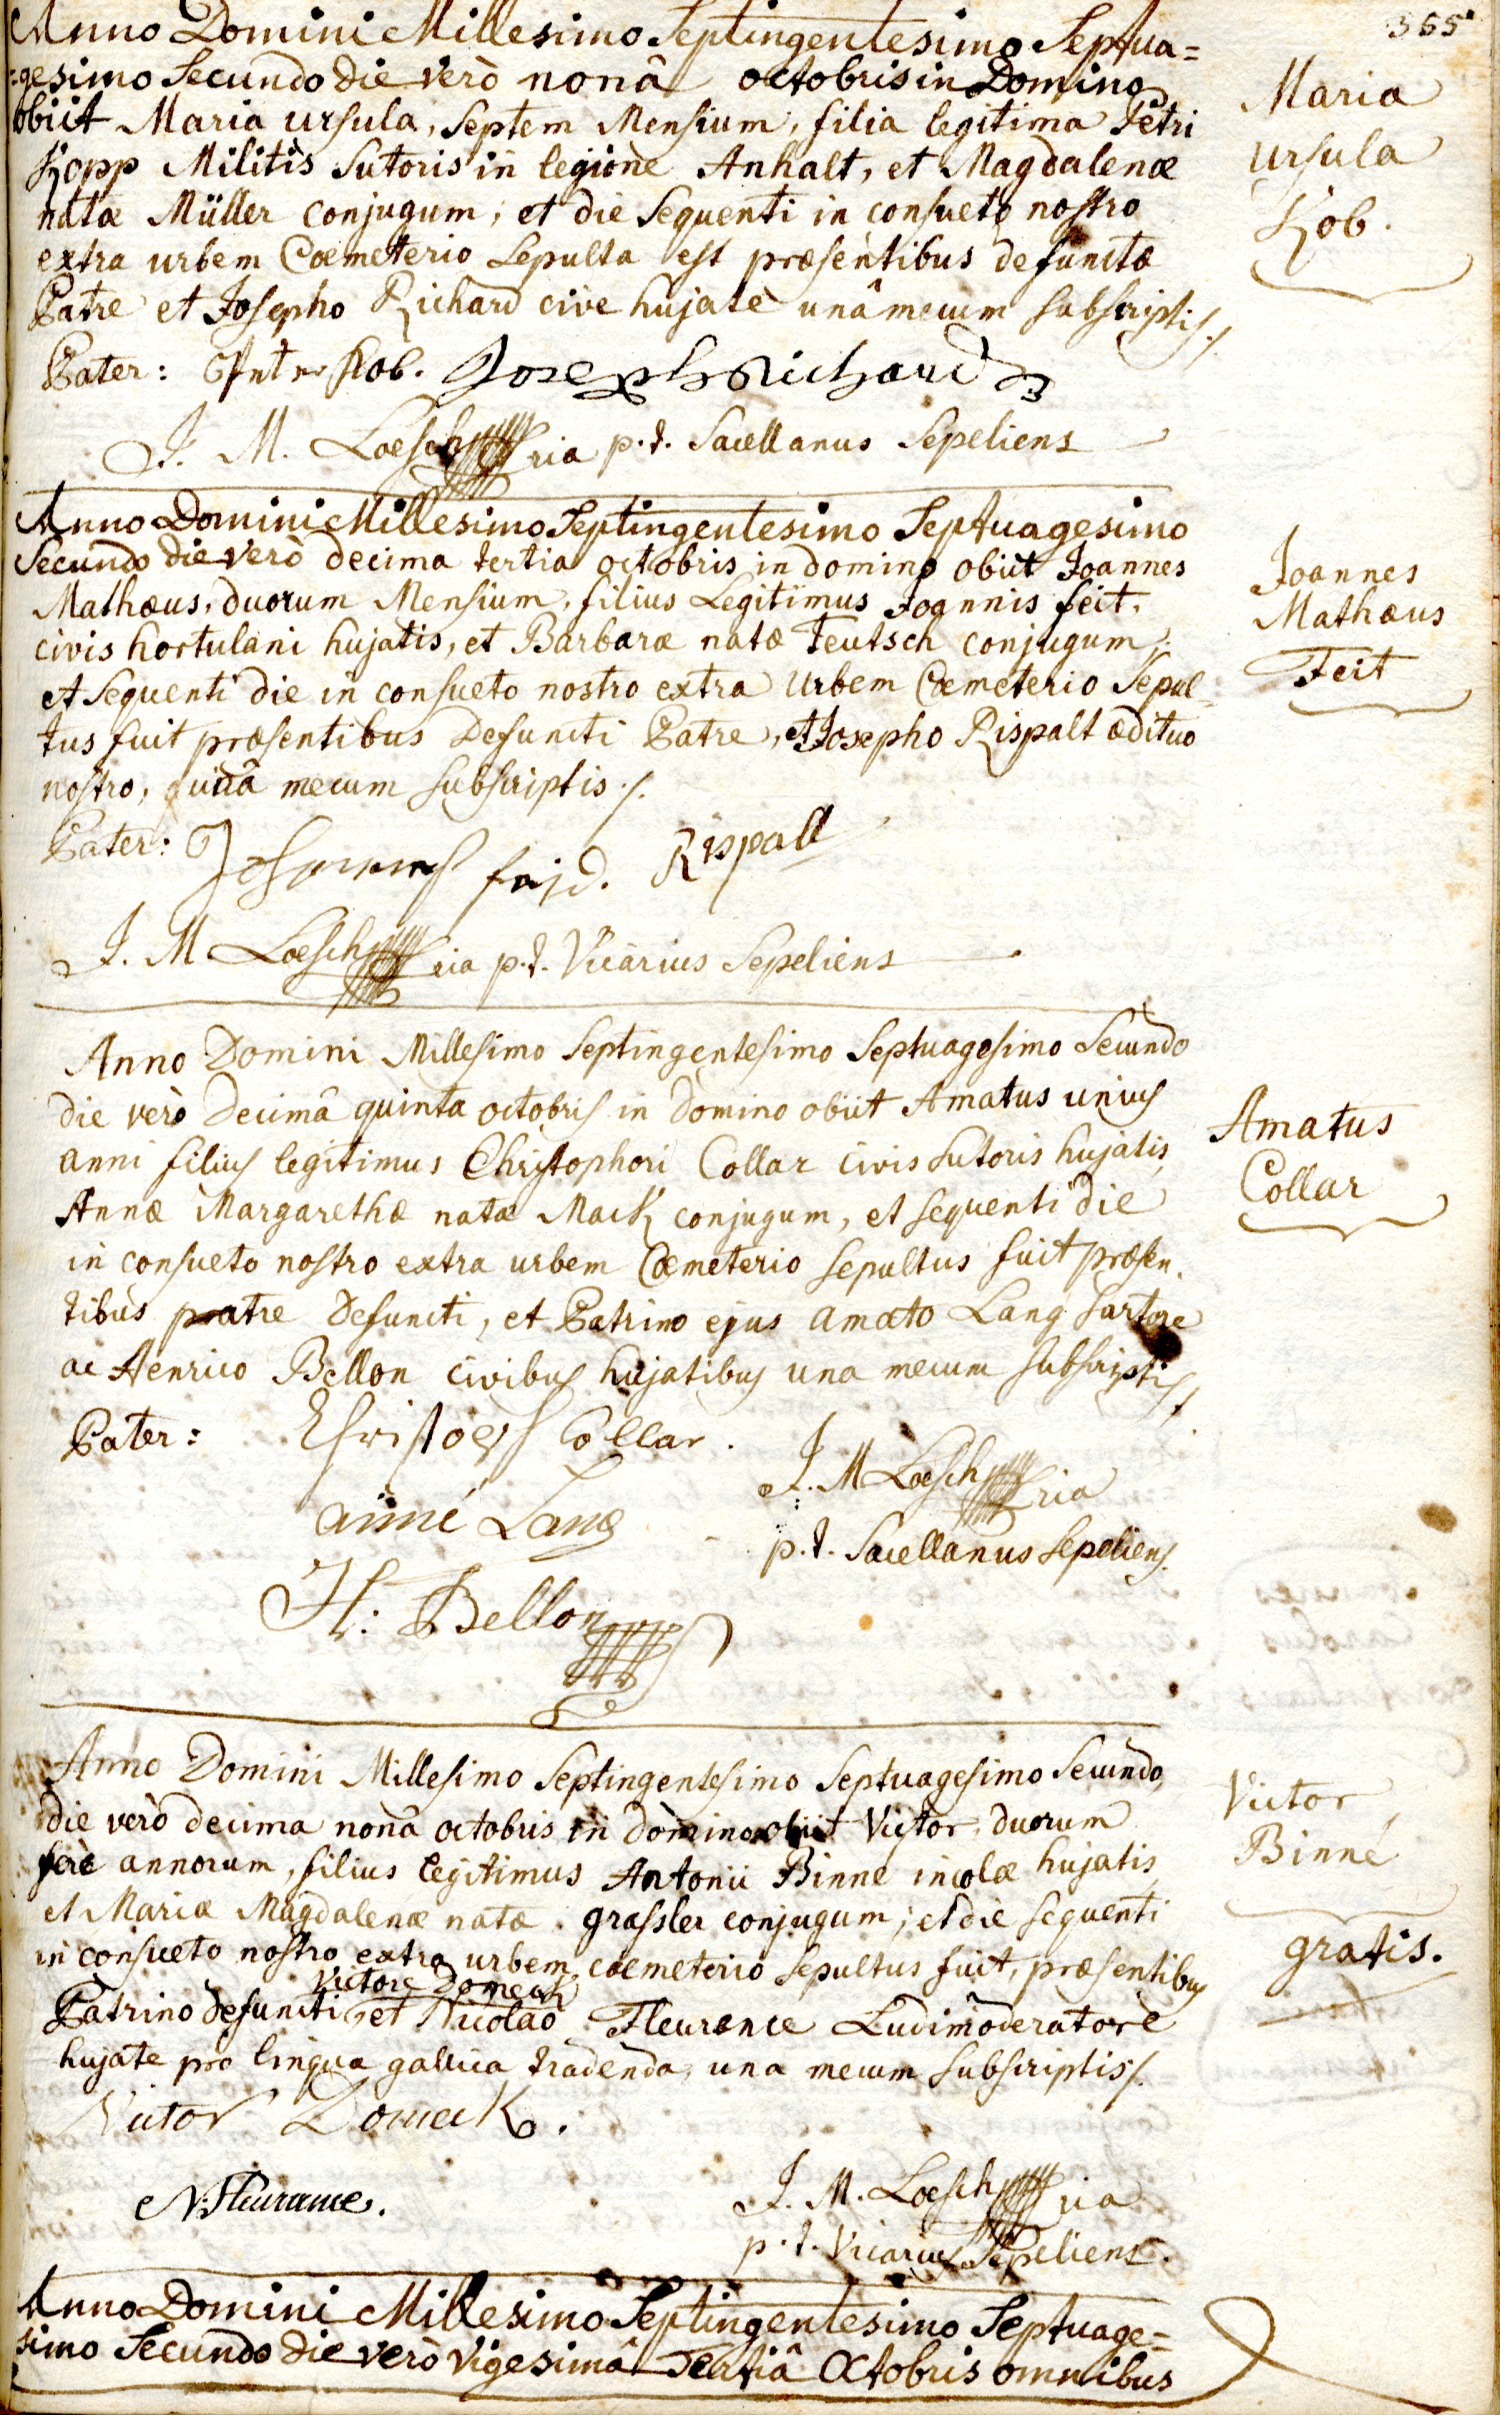 365
Anno Domini Millesimo Septingentesimo Septua=
=gesimo Secundo die verò nonâ octobris in Domino
obiit Maria Ursula, Septem Mensium, filia legitima Petri
Kopp Militis Sutoris in legione Anhalt, et Magdalenæ
natæ Müller conjugum, et die sequenti in consueto nostro
extra urbem Cœmeterio Sepulta est præsentibus defunctæ
Patre et Josepho Richard cive hujate unâ mecum subscriptis ./.
Maria
Ursula
Kob.
Pater: Peter Kob. Joseph Richard
J. M. Loesch p.t. Sacellanus Sepeliens
Anno Domini Millesimo Septingentesimo Septuagesimo
Secundo die verò decima tertia octobris in domino obiit Joannes
Mathæus, duorum Mensium, filius Legitimus Joannis feit,
civis hortulani hujatis, et Barbaræ natæ Teutsch conjugum;
et sequenti die in consueto nostro extra Urbem Cœmeterio Sepul=
tus fuit præsentibus Defuncti Patre, et Josepho Rispalt ædituo
nostro, unâ mecum subscriptis ./.
Joannes
Mathæus
Feit
Pater: Johannes feid. Rispall
J. M Loesch p.t. Vicarius Sepeliens
Anno Domini Millesimo Septingentesimo Septuagesimo Secundo
die verò decimâ quinta octobris in Domino obiit Amatus unius
anni filius legitimus Christophori Collar civis sutoris hujatis,
Annæ Margarethæ nata Mack conjugum, et sequenti die
in consueto nostro extra urbem Cœmeterio sepultus fuit præsen-
tibus patre Defuncti, et Patrino ejus amato Lang sartore
ac Henrico Bellon civibus hujatibus una mecum subscriptis ./.
Amatus
Collar
Pater: Christoph Collar.
aimé Lang
H: Bellon
J. M Loesch
p.t. Sacellanus Sepeliens.
Anno Domini Millesimo Septingentesimo Septuagesimo Secundo,
die verò decima nona octobris in domino obiit Victor, duorum
ferè annorum, filius legitimus Antonii Binné incolæ hujatis,
et Mariæ Magdalenæ natæ grassler conjugum; et die sequenti
in consueto nostro extra urbem cœmeterio sepultus fuit, præsentibus
Victore Domeck
Patrino defuncti, et Nicolao Fleurence Ludimoderatore
hujate pro lingua gallica tradenda, una mecum subscriptis ./.
Victor
Binné
gratis.
Victor Domeck.
N. Fleurance.
J. M. Loesch
p.t. Vicarius Sepeliens.
Anno Domini Millesimo Septingentesimo Septuage=
simo Secundo die verò Vigesimâ Tertiâ Octobris omnibus